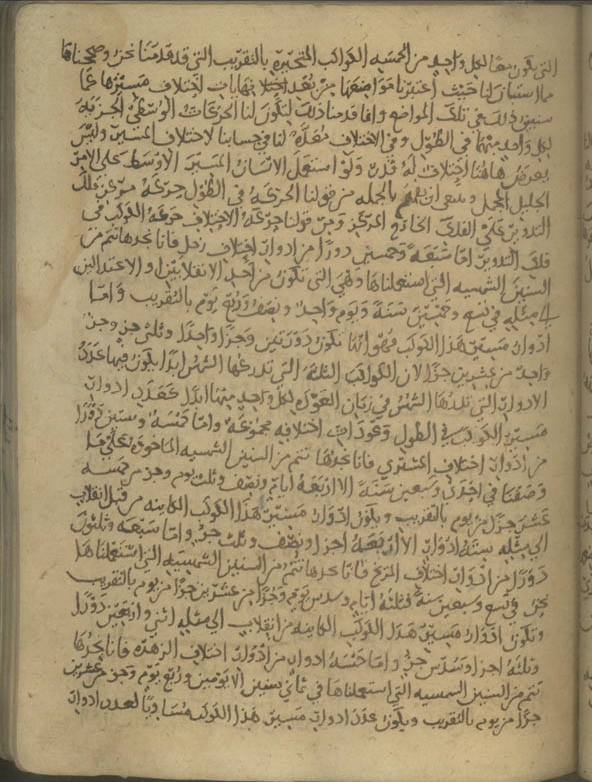 التي يكون بها لكل واحد من الخمسه الكواكب المتحيره بالتقريب التي قد قدمنا نحن وصححناها
مما استبان لنا حيث اعتبرنا مواضعها من بعد اختلافها بابات اختلاف مسيرها مما
سنبين ذلك في تلك المواضع وانما قدمنا ذلك لتكون لنا الحركات الوسطى الجزئيه
لكل واحد منها في الطول وفي الاختلاف معدة لنا في حسابنا لاختلاف المسير وليس
يعرض هاهنا اختلاف له قدر ولو استعمل الانسان المسير الاوسط على الامر
الجليل المجمل وينبغي ان يفهم بالجمله من قولنا الحركة في الطول حركة مركز فلك
التدوير على الفلك الخارج المركز ومن قولنا حركة الاختلاف حركة الكوكب في
فلك التدوير اما سبعة وخمسين دورا من ادوار اختلاف زحل فانا نجدها تتم من
السنين الشمسيه التي استعملناها وهي التي تكون من احد الانقلابين او الاعتدالين
الى مثله في تسع وخمسين سنة ويوم واحد ونصف وربع يوم بالتقريب واما
ادوار مسير هذا الكوكب فهو انها تكون دورتين وجزءا واحدا وثلثي جزء وجزء
واحد من عشرين جزءا لان الكواكب الثلثة التي تدركها الشمس ابدا يكون فيها عدد
الادوار التي تدورها الشمس في زمان العودة لكل واحد منها ابدا كعدد ادوار
مسير الكوكب في الطول وعودات اختلافه مجموعة واما خمسه وستين دورا
من ادوار اختلاف المشتري فانا نجدها تتم من السنين الشمسيه الماخوذه على ما
وصفنا في احدى وسبعين سنة الا اربعة ايام ونصف وثلث يوم وجزء من خمسه
عشر جزءا من يوم بالتقريب ويكون ادوار مسير هذا الكوكب الكاينه من قبل انقلاب
الى مثله ستة ادوار الا اربعة اجزا ونصف وثلث جزء واما سبعه وثلثون
دورا من ادوار اختلاف المريخ فانا نجدها تتم من السنين الشمسيه التي استعملناها
نحن في تسع وسبعين سنة وثلثة ايام وسدس يوم وجزءا من عشرين جزءا من يوم بالتقريب
وتكون ادوار مسير هذا الكوكب الكاينه من انقلاب الى مثله اثني واربعين دورا
وثلثة اجزا وسدس جزء واما خمسه ادوار من ادوار اختلاف الزهره فانا نجدها
تتم من السنين الشمسيه التي استعملناها في ثماني سنين الا يومين وربع يوم وجزء من عشرين
جزءا من يوم بالتقريب ويكون عدد ادوار مسير هذا الكوكب مساويا لعدد ادوار